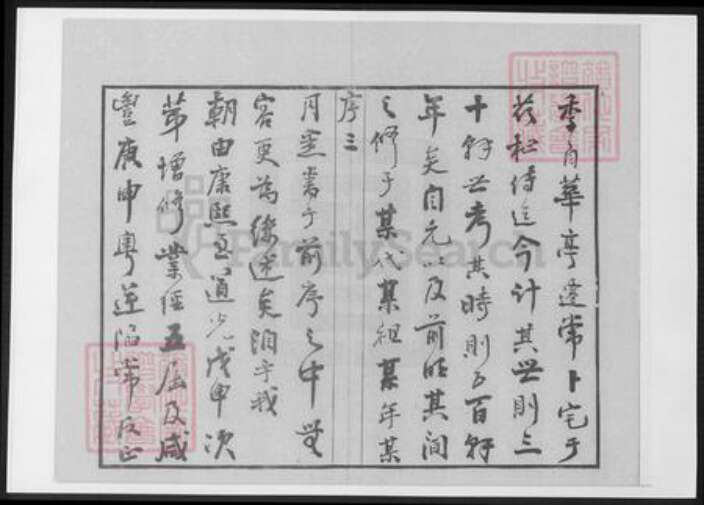 季自華亭遷常卜宅于
茲秘傳迄今計其世則三
十餘世考其時則五百餘
年矣自元以及前明其间
之修于某代某祖某年某
序三
月悉書于前序之中無
容更為縷述矣洎乎我
朝由康熙至道光戊申次
第增修業經五屆及咸
豐庚申粵逆陷常反正
FamilySearch